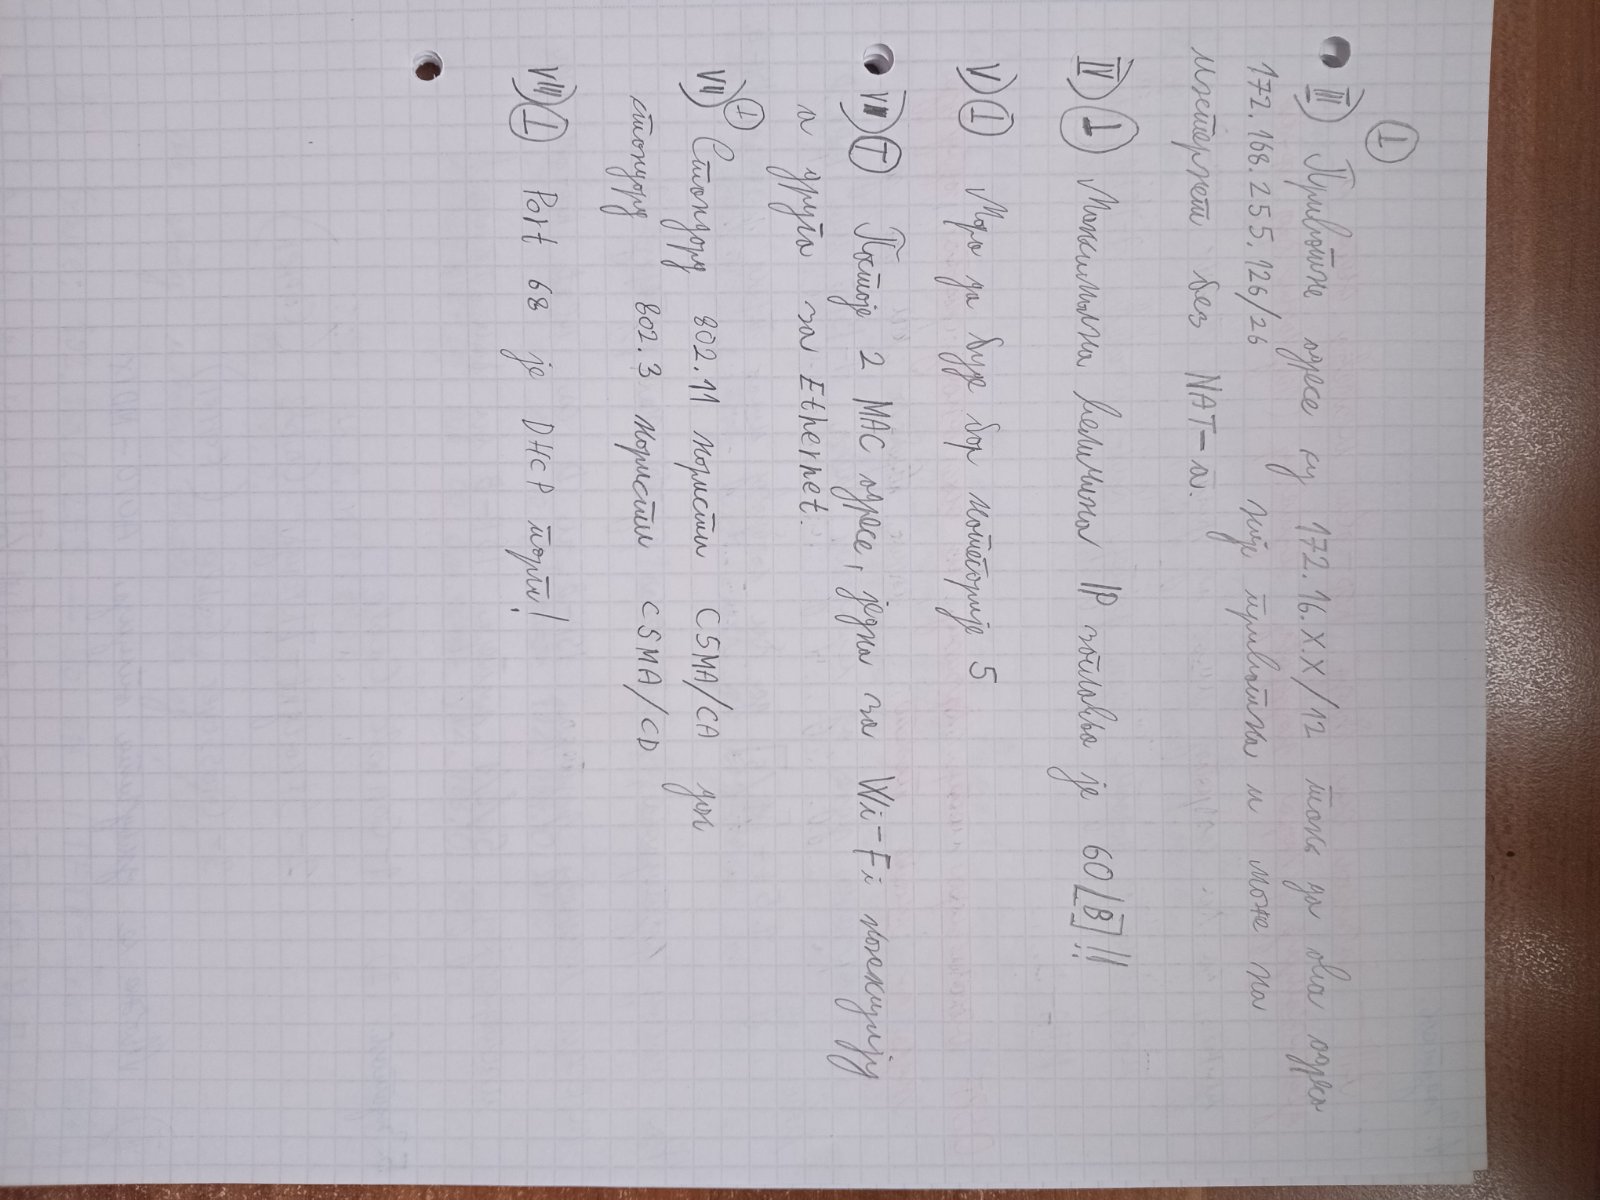 ⊥
III) Приватне адресе су 172.16.X.X/12 тако да ова адреса
172.168.255.126/26 није приватна и може на
интернет без NAT-а.
IV) ⊥ Максимална величина IP заглавља је 60[B]!!
V) ⊥ Мора да буде бар категорије 5
VI) T Постоје 2 MAC адресе, једна за Wi-Fi конекцију
а друга за Ethernet.
⊥
VII) Стандард 802.11 користи CSMA/CA док
стандард 802.3 користи CSMA/CD
VIII) ⊥ Port 68 је DHCP порт!